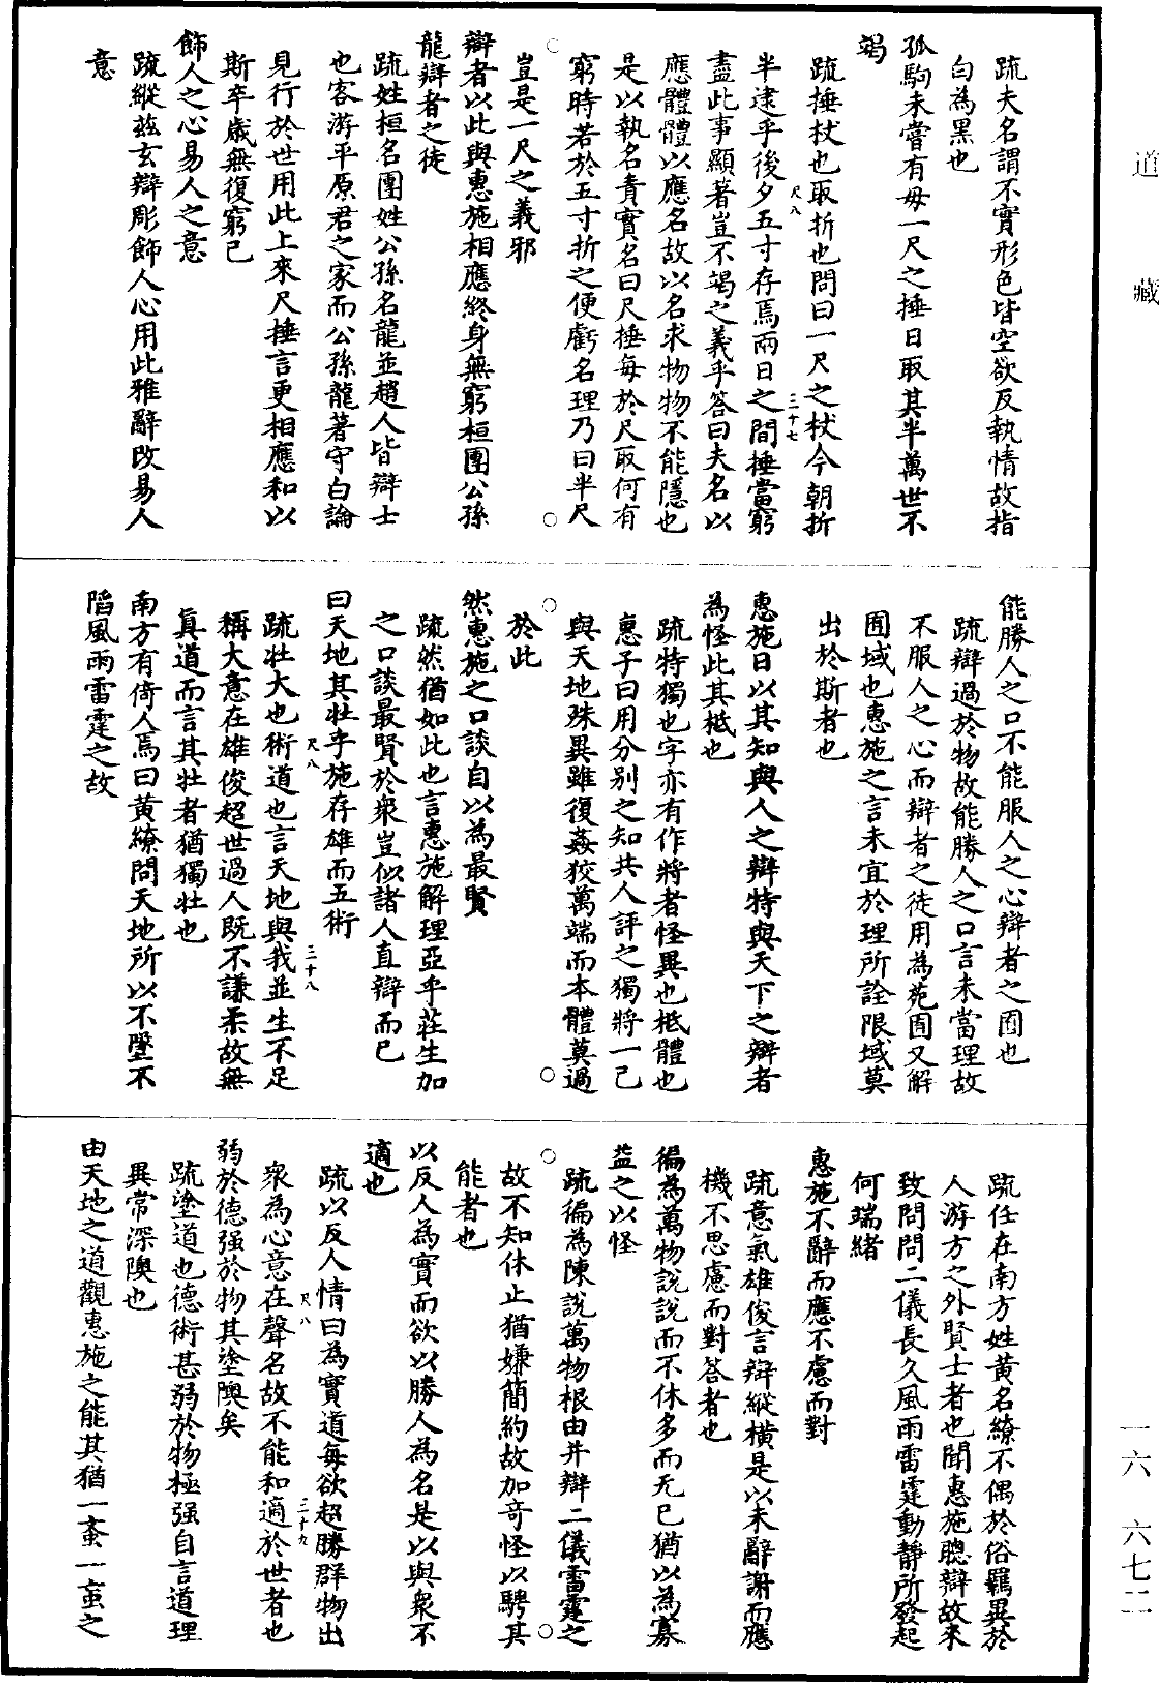 道藏
疏夫名謂不實形色皆空欲反執情故指
白為黑也
孤駒未嘗有母一尺之捶日取其半萬世不
竭
疏捶杖也取折也問曰一尺之杖今朝折
尺八
三十七
半逮乎後夕五寸存焉兩日之間捶當窮
盡此事顯著豈不竭之義乎答曰夫名以
應體體以應名故以名求物物不能隱也
是以執名責實名曰尺捶每於尺取何有
窮時若於五寸折之便虧名理乃曰半尺
豈是一尺之義邪
辯者以此與惠施相應終身無窮桓團公孫
龍辯者之徒
疏姓桓名團姓公孫名龍並趙人皆辯士
也客游平原君之家而公孫龍著守白論
見行於世用此上來尺捶言更相應和以
斯卒歲無復窮已
飾人之心易人之意
疏縱茲玄辯彫飾人心用此雅辭改易人
意
能勝人之口不能服人之心辯者之囿也
疏辯過於物故能勝人之口言未當理故
不服人之心而辯者之徒用為苑囿又解
囿域也惠施之言未宜於理所詮限域莫
出於斯者也
惠施日以其知與人之辯特與天下之辯者
為怪此其柢也
疏特獨也字亦有作將者怪異也柢體也
惠子曰用分別之知共人評之獨將一己
與天地殊異雖復姦狡萬端而本體莫過
於此
然惠施之口談自以為最賢
疏然猶如此也言惠施解理亞乎莊生加
之口談最賢於眾豈似諸人直辯而已
曰天地其壯乎施存雄而五術
疏壯大也術道也言天地與我並生不足
尺八
三十八
稱大意在雄俊超世過人既不謙柔故無
真道而言其壯者猶獨壯也
南方有倚人焉曰黃繚問天地所以不墜不
陷風雨雷霆之故
疏任在南方姓黃名繚不偶於俗羈異於
人游方之外賢士者也聞惠施聰辯故來
致問問二儀長久風雨雷霆動靜所發起
何端緒
惠施不辭而應不慮而對
疏意氣雄俊言辯縱橫是以未辭謝而應
機不思慮而對答者也
徧為萬物說說而不休多而无已猶以為寡
益之以怪
疏徧為陳說萬物根由并辯二儀雷霆之
故不知休止猶嫌簡約故加奇怪以騁其
能者也
以反人為實而欲以勝人為名是以與眾不
適也
疏以反人情曰為實道每欲超勝群物出
眾為心意在聲名故不能和適於世者也
尺八
三十九
弱於德强於物其塗隩矣
疏塗道也德術甚弱於物極强自言道理
異常深隩也
由天地之道觀惠施之能其猶一蚉一䖟之
一六
六七二